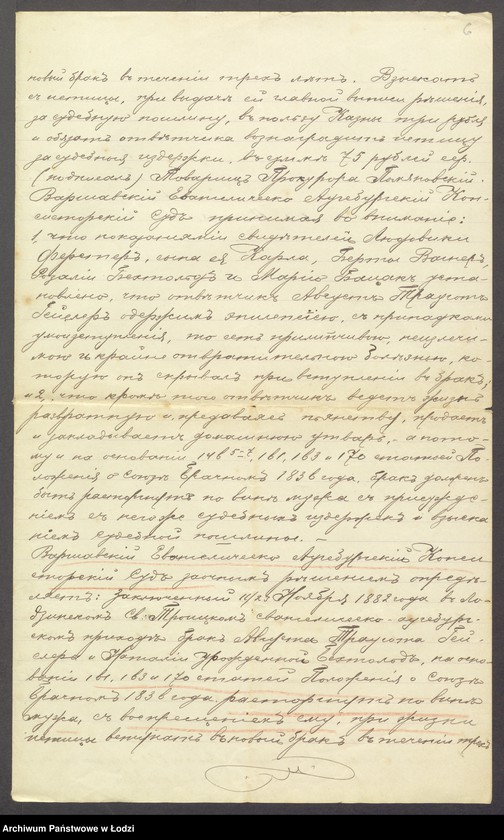 6
новый бракъ въ теченіи трехъ лѣтъ. Взыскать
съ истицы, при выдачѣ ей главной выписи рѣшенія,
за судебную пошлину, въ пользу Казны три рубля
и обязать отвѣтчика вознаградить истицу
за судебныя издержки въ суммѣ 75 рублей сер.
(подписалъ) Товарищъ Прокурора
Варшавскій Евангелическо Аугсбургскій Кон-
систорскій Судъ принимая во вниманіе:
1, что показаніями свидѣтелей Людовики
Ферстеръ, сына ея Карла, Берты Вагнеръ,
Розаліи Бехтольдъ и Маріи уста-
новлено, что отвѣтчикъ Августъ Трауготъ
Гейслеръ одержимъ эпилепсіею, съ припадками
умоизступленія, то есть прилипчивою, неизлечи-
мою и крайне отвратительною болѣзнью, ко-
торую онъ скрывалъ при вступленіи въ бракъ;
и 2, что кромѣ того отвѣтчикъ ведетъ жизнь
развратную и предаваясь пьянству, продаетъ
и закладываетъ домашнюю утварь, а пото-
му и на основаніи 146 161, 163 и 170 статей По-
ложенія о союзѣ брачномъ 1836 года бракъ долженъ
быть расторгнутъ по винѣ мужа съ присужде-
ніемъ съ него же судебныхъ издержекъ и взыска-
ніемъ судебной пошлины. —
Варшавскій Евангелическо Аугсбургскій Конси
сторскій Судъ заочнымъ рѣшеніемъ опредѣ-
ляетъ: Заключенный Ноября 1882 года въ Ло-
дзинскомъ Св. Троицкомъ евангелическо-аугсбург-
скомъ приходѣ бракъ Августа Траугота Гей-
слера и Наталіи урожденной Бехтольдъ, на осно-
ваніи 161, 163 и 170 статей Положенія о Союзѣ
Брачномъ 1836 года, расторгнуть по винѣ
мужа, съ воспрещеніемъ ему, при жизни
истицы вступать въ новый бракъ въ теченіи трехъ
Archiwum Państwowe w Łodzi